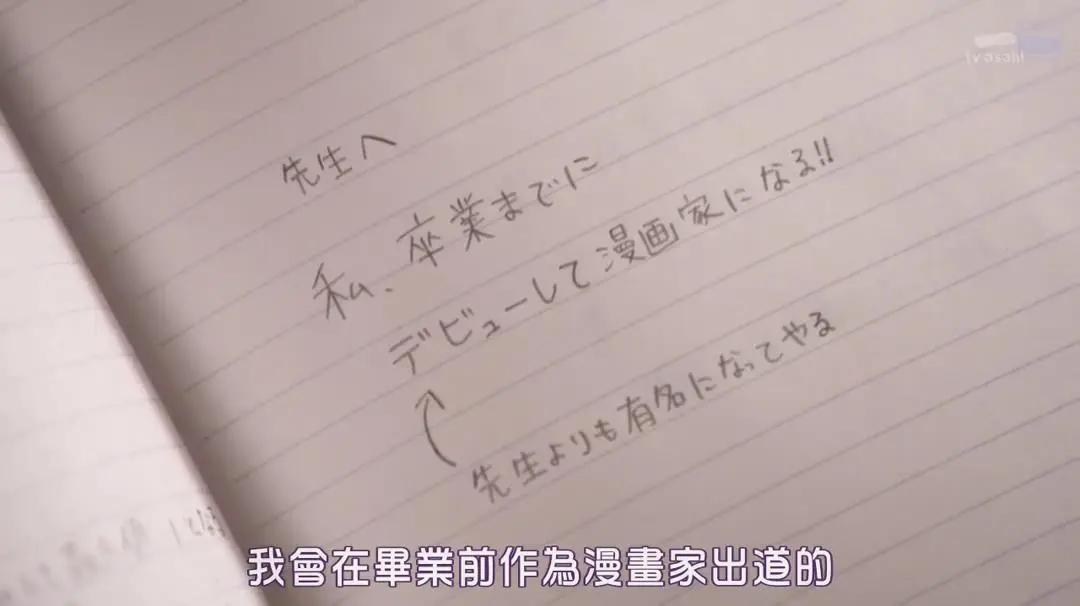 tv asahi
先生へ
私、卒業までに
デビューして漫画家になる!!
先生よりも有名になってやる
我會在畢業前作為漫畫家出道的